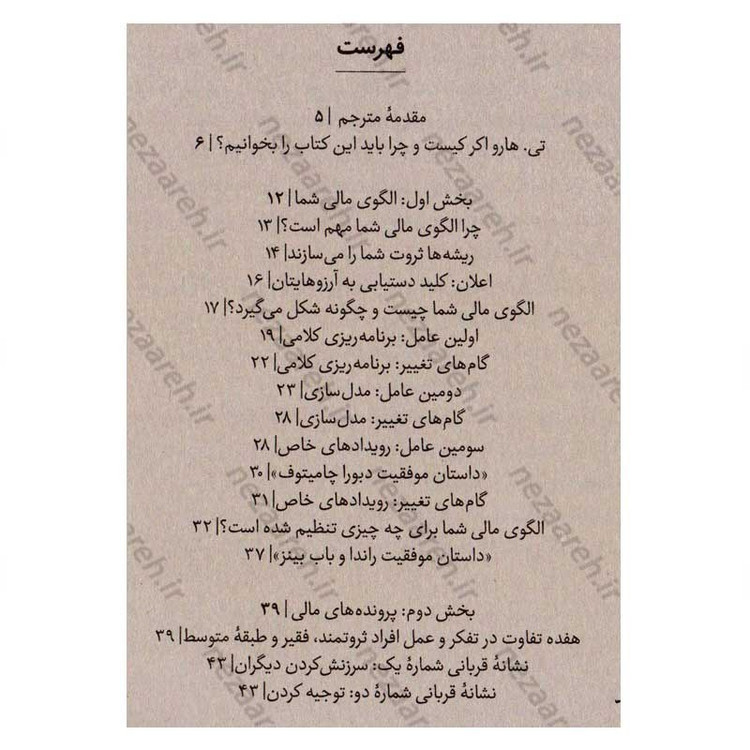 فهرست
مقدمهٔ مترجم | ۵
تی. هارو اکر کیست و چرا باید این کتاب را بخوانیم؟ | ۶
بخش اول: الگوی مالی شما| ۱۲
چرا الگوی مالی شما مهم است؟| ۱۳
ریشه‌ها ثروت شما را می‌سازند| ۱۴
اعلان: کلید دستیابی به آرزوهایتان| ۱۶
الگوی مالی شما چیست و چگونه شکل می‌گیرد؟| ۱۷
اولین عامل: برنامه‌ریزی کلامی| ۱۹
گام‌های تغییر: برنامه‌ریزی کلامی| ۲۲
دومین عامل: مدل‌سازی| ۲۳
گام‌های تغییر: مدل‌سازی| ۲۸
سومین عامل: رویدادهای خاص| ۲۸
«داستان موفقیت دبورا چامیتوف»| ۳۰
گام‌های تغییر: رویدادهای خاص| ۳۱
الگوی مالی شما برای چه چیزی تنظیم شده است؟| ۳۲
«داستان موفقیت راندا و باب بینز»| ۳۷
بخش دوم: پرونده‌های مالی| ۳۹
هفده تفاوت در تفکر و عمل افراد ثروتمند، فقیر و طبقهٔ متوسط| ۳۹
نشانهٔ قربانی شمارهٔ یک: سرزنش‌کردن دیگران| ۴۳
نشانهٔ قربانی شمارهٔ دو: توجیه کردن| ۴۳
nezaareh.ir